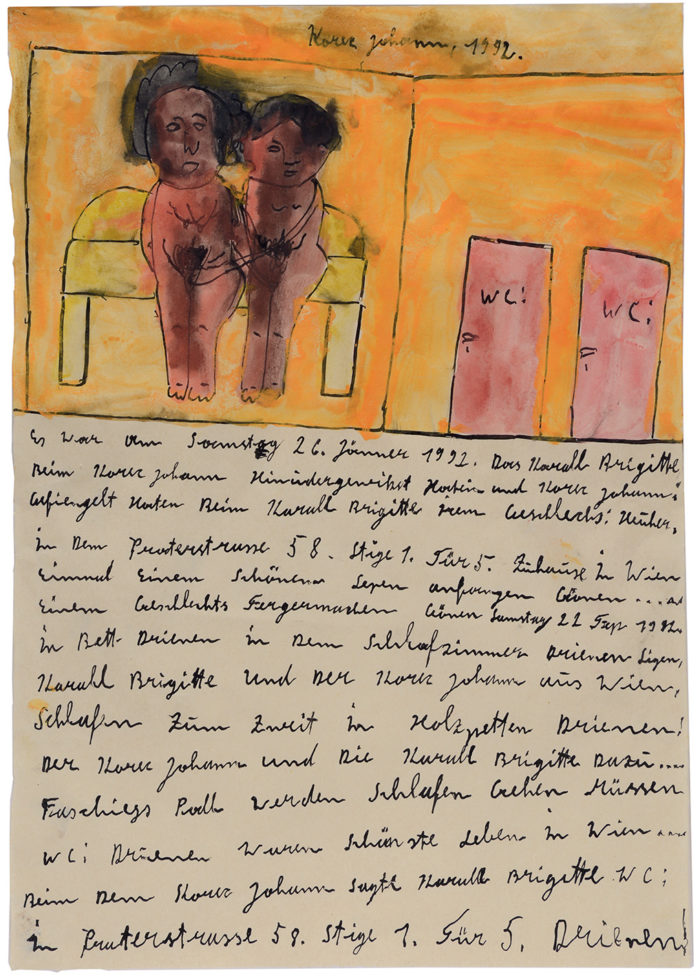 Korec Johann, 1992.
WC:
WC:
Es War am Samstag 26. Jänner 1992. Das Karall Brigitte
Beim Korec Johann und Korec Johann:
Beim Karall Brigitte
in Dem Praterstrasse 58. Stige 1. Tür 5. Zuhause in Wien
Einmal Einem Schönen anfangen Gönen....
Einem Geschlechts Gönen Samstag 22 1992.
in Bett Drienen in Dem Schlafzimmer Drienen Ligen,
Karall Brigitte Und Der Korec Johann aus Wien,
Schlafen Zum Zweit in Holzpetten Drienen!
Der Korec Johann und Die Karall Brigitte Dazu....
Faschings werden Schlafen Gehen Müssen
WC: Drienen Waren Schönste Leben in Wien....
Beim Dem Korec Johann Sagte Karall Brigitte WC:
in Praterstrasse 58. Stige 1. Tür 5. Drienen!